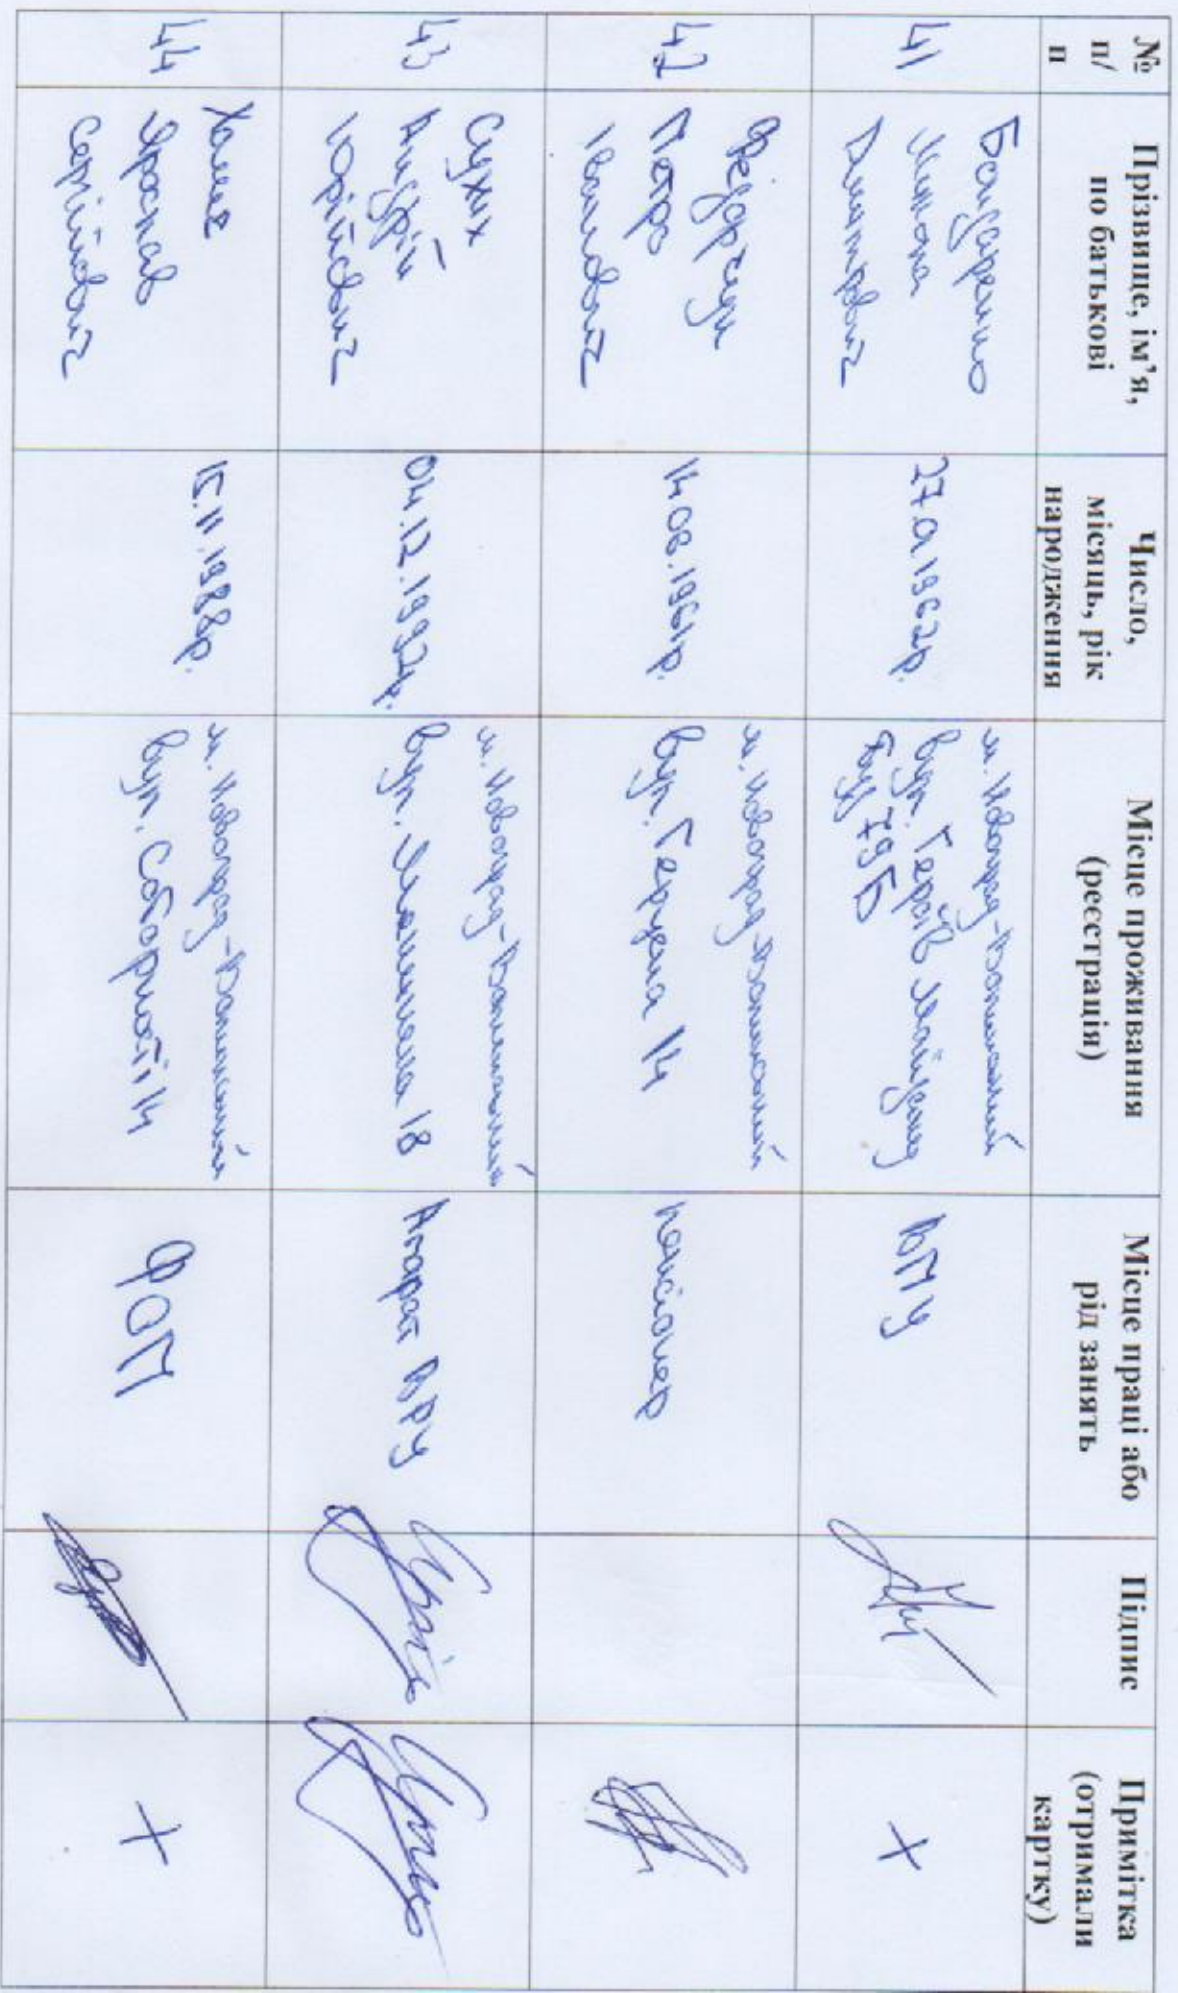 № п/п
Прізвище, ім’я, по батькові
Число, місяць, рік народження
Місце проживання (реєстрація)
Місце праці або рід занять
Підпис
Примітка (отримали картку)
41
Бондаренко
Микола
Дмитрович
27.01.1962р.
м. Новоград-Волинський
вул. Героїв Майдану
буд 79Б
ВПУ
+
42
Петро
Іванович
14.08.1961р.
м. Новоград-Волинський
вул. Герцена 14
пенсіонер
43
Сухих
Андрій
Юрійович
04.12.1992р.
м. Новоград-Волинський
вул. 18
Апарат ВРУ
44
Ярослав
Сергійович
15.11.1988р.
м. Новоград-Волинський
вул. Соборності 14
ФОП
+